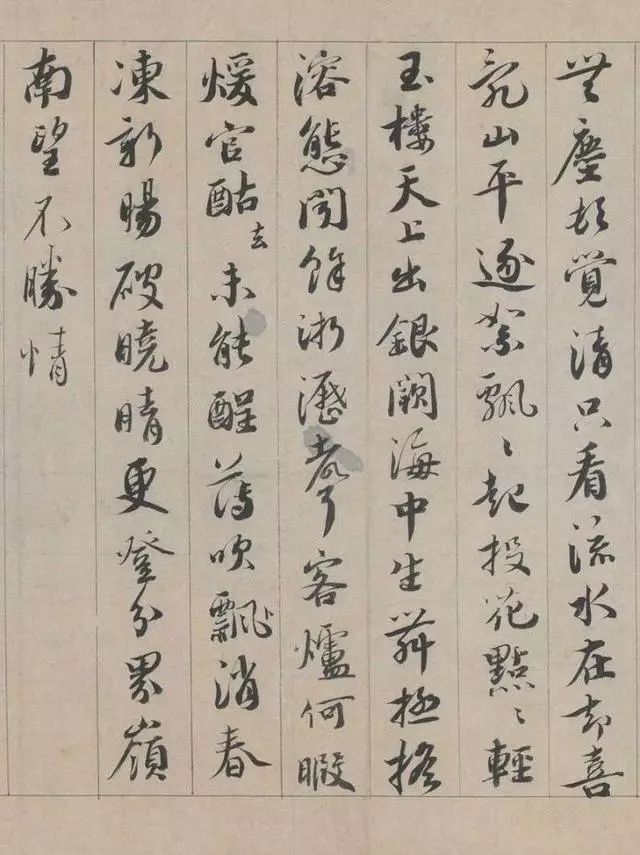 無塵頓覺清只看流水在却喜
亂山平逐絮飄〻起投花點〻輕
玉樓天上出銀闕海中生舞極搖
溶態聞餘淅瀝聲客爐何暇
煖官酤去未能醒薄吹飄消春
凍新暘破曉晴更登分界嶺
南望不勝情